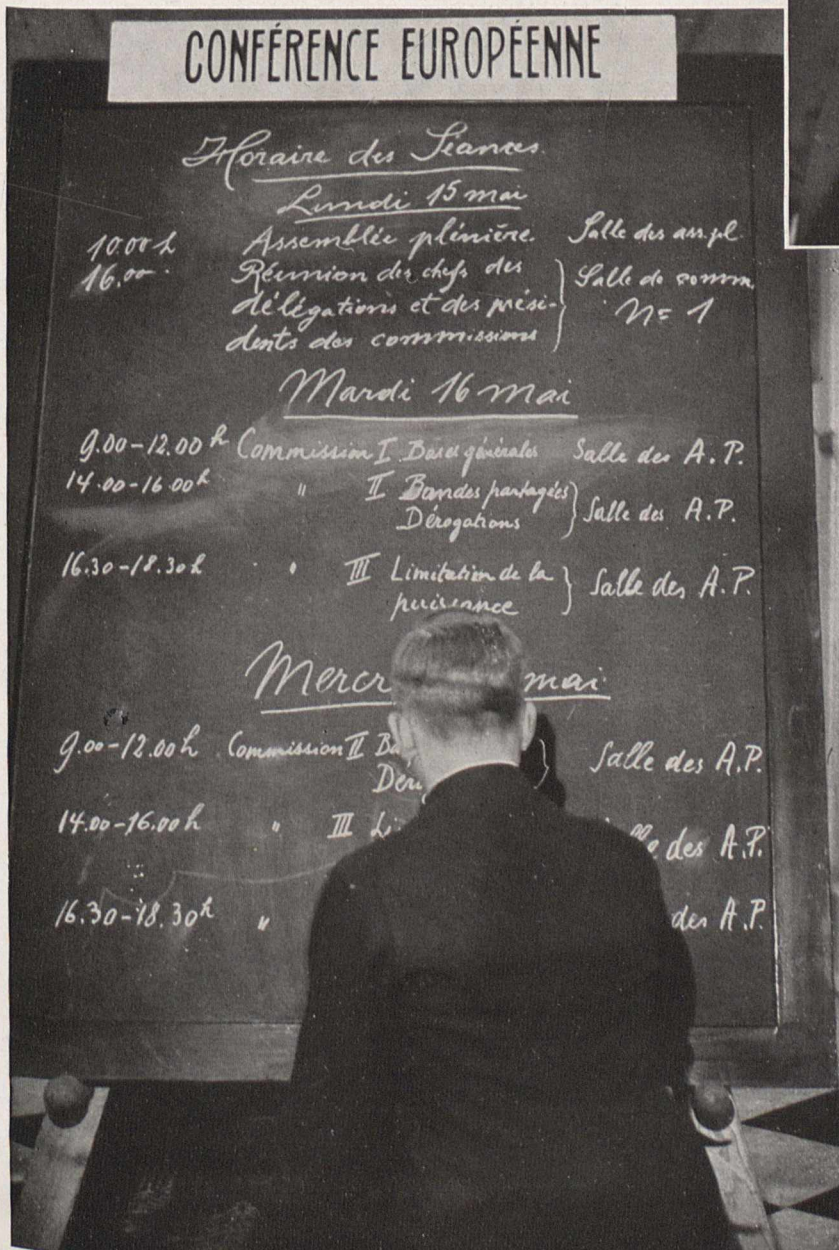 CONFÉRENCE EUROPÉENNE
Horaire des Séances.
Lundi 15 mai
10.00 h Assemblée plénière. Salle des ass. pl.
16.00 Réunion des chefs des Salle de comm
délégations et des prési- N= 1
dents des commissions
Mardi 16 mai
9.00-12.00 h Commission I Bases générales Salle des A.P.
14.00-16.00 h " II Bandes partagées Salle des A.P.
Dérogations
16.30-18.30 h " III Limitation de la Salle des A.P.
puissance
mai
9.00-12.00 h Commission II Salle des A.P.
14.00-16.00 h " III des A.P.
16.30-18.30 h " des A.P.